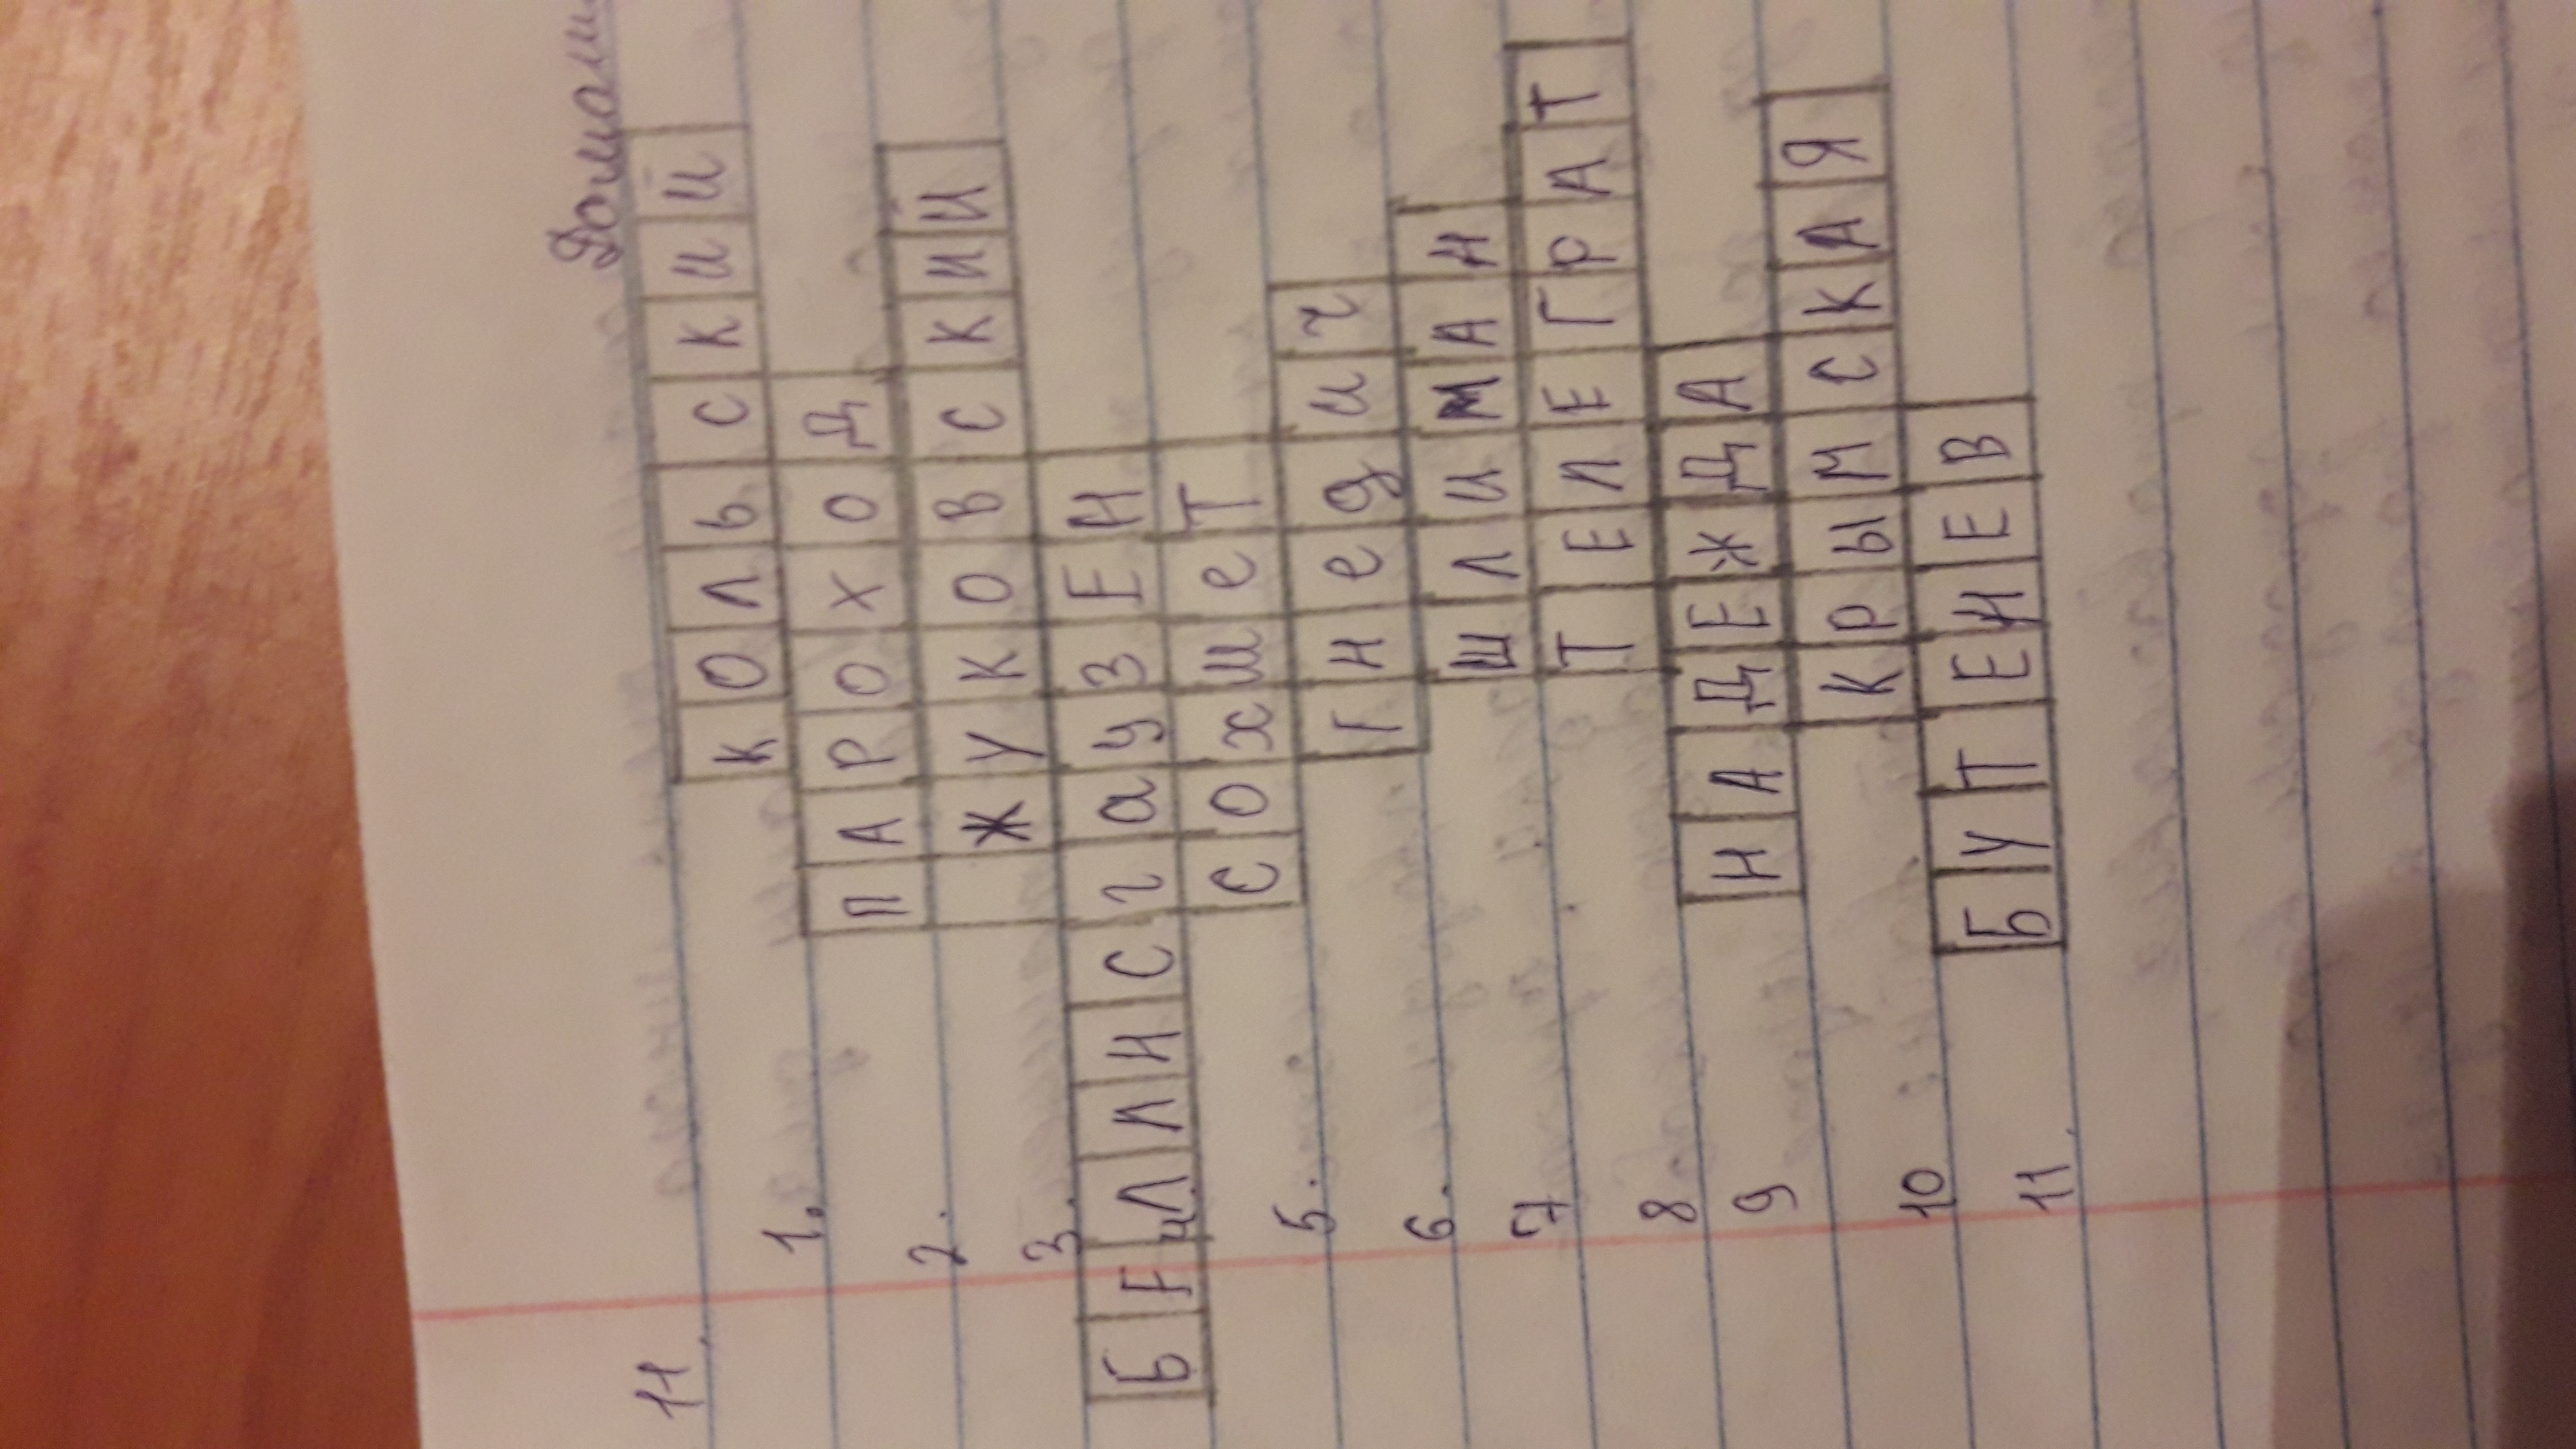 Домашн
11.
1. КОЛЬСКИЙ
2. ПАРОХОД
3. ЖУКОВСКИЙ
4. БЕЛЛНСгаузЕН
5. СохшеТ
6. Гнедич
7 ШЛИМАН
8 ТЕЛЕГРАТ
9 НАДЕЖДА
10 КРЫМСКАЯ
11. БУТЕНЕВ